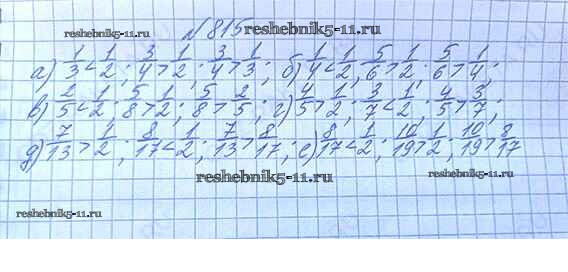 №815
reshebnik5-11.ru
а) 1/3 < 1/2 ; 3/4 > 1/2 ; 3/4 > 1/3 ; б) 1/4 < 1/2 ; 5/6 > 1/2 ; 5/6 > 1/4 ;
в) 2/5 < 1/2 ; 5/8 > 1/2 ; 5/8 > 2/5 ; г) 4/5 > 1/2 ; 3/7 < 1/2 ; 4/5 > 3/7 ;
д) 7/13 > 1/2 ; 8/17 < 1/2 ; 7/13 > 8/17 ; е) 8/17 < 1/2 ; 10/19 > 1/2 ; 10/19 > 8/17
reshebnik5-11.ru
reshebnik5-11.ru
reshebnik5-11.ru